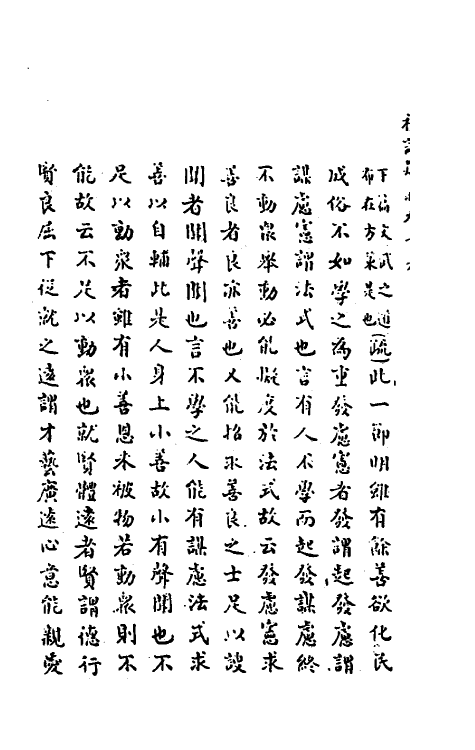 下篇文武之道
布在方策是也(疏)此一節明雖有餘善欲化民
成俗不如學之為重發慮憲者發謂起發慮謂
謀慮憲謂法式也言有人不學而起發謀慮終
不動眾舉動必能擬度於法式故云發慮憲求
善良者良亦善也又能招求善良之士足以謏
聞者聞聲聞也言不學之人能有謀慮法式求
善以自輔此是人身上小善故小有聲聞也不
足以動眾者雖有小善恩未被物若動眾則不
能故云不足以動眾也就賢體遠者賢謂德行
賢良屈下從就之遠謂才藝廣遠心意能親愛